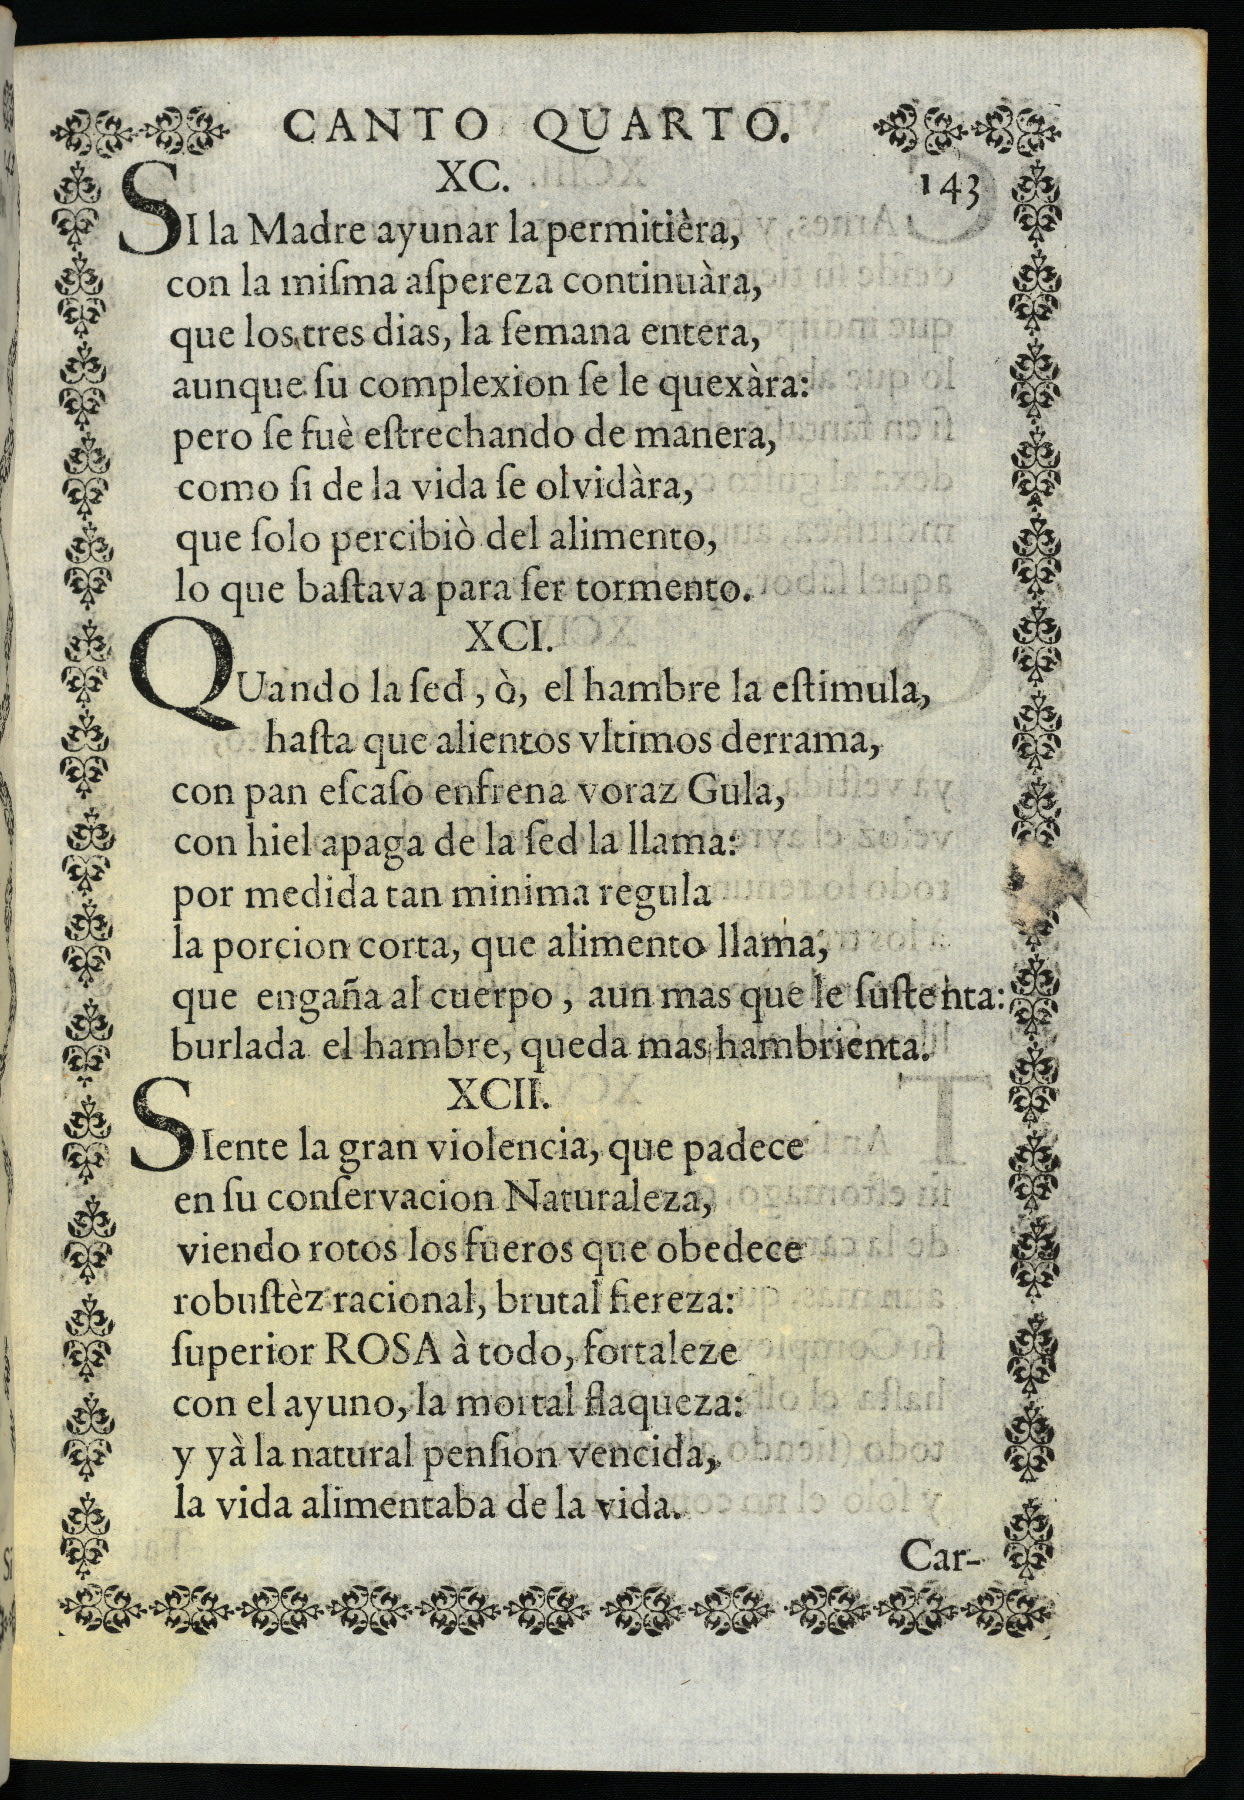 CANTO QUARTO.
XC.
143
SI la Madre ayunar la permitièra,
con la miſma aſpereza continuàra,
que los tres dias, la ſemana entera,
aunque ſu complexion ſe le quexàra:
pero ſe fuè eſtrechando de manera,
como ſi de la vida ſe olvidàra,
que ſolo percibiò del alimento,
lo que baſtava para ſer tormento.
XCI.
QUando la ſed, ò, el hambre la eſtimula,
haſta que alientos vltimos derrama,
con pan eſcaſo enfrena voraz Gula,
con hiel apaga de la ſed la llama:
por medida tan minima regula
la porcion corta, que alimento llama,
que engaña al cuerpo, aun mas que le ſuſtenta:
burlada el hambre, queda mas hambrienta.
XCII.
SIente la gran violencia, que padece
en ſu conſervacion Naturaleza,
viendo rotos los fueros que obedece
robuſtèz racional, brutal fiereza:
ſuperior ROSA à todo, fortaleze
con el ayuno, la mortal flaqueza:
y yà la natural penſion vencida,
la vida alimentaba de la vida.
Car-